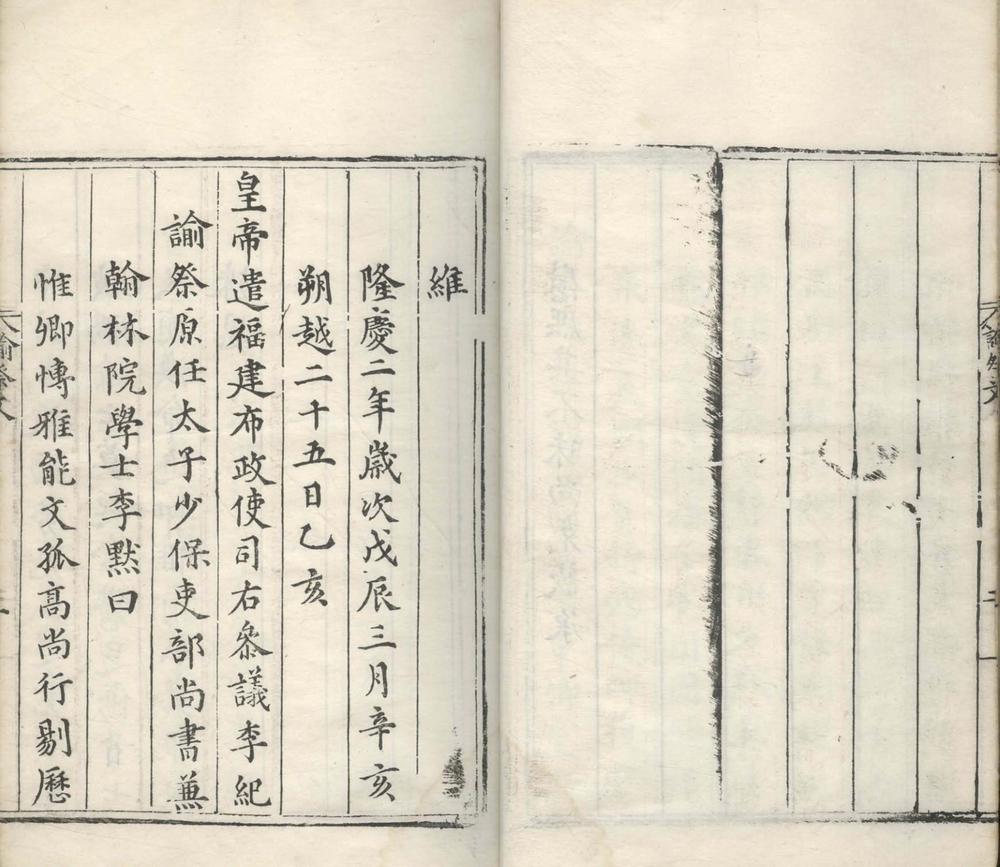 諭祭文
維
隆慶二年歲次戊辰三月辛亥
朔越二十五日乙亥
皇帝遣福建布政使司右叅議李紀
諭祭原任太子少保吏部尚書兼
翰林院學士李默曰
惟卿博雅能文孤高尚行剔歷
諭祭文